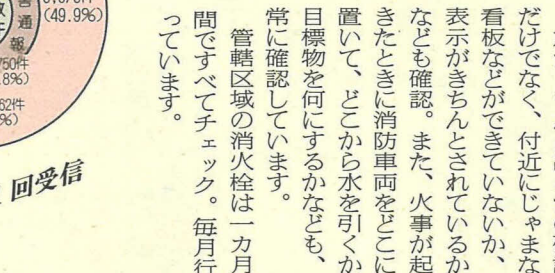 だけでなく、付近にじゃまな
看板などができていないか、
表示がきちんとされているか
なども確認。また、火事が起
きたときに消防車両をどこに
置いて、どこから水を引くか
目標物を何にするかなども、
常に確認しています。
管轄区域の消火栓は一カ月
間ですべてチェック。毎月行
っています。
(49.9%)
通報
750件
8%)
62件
%)
回受信